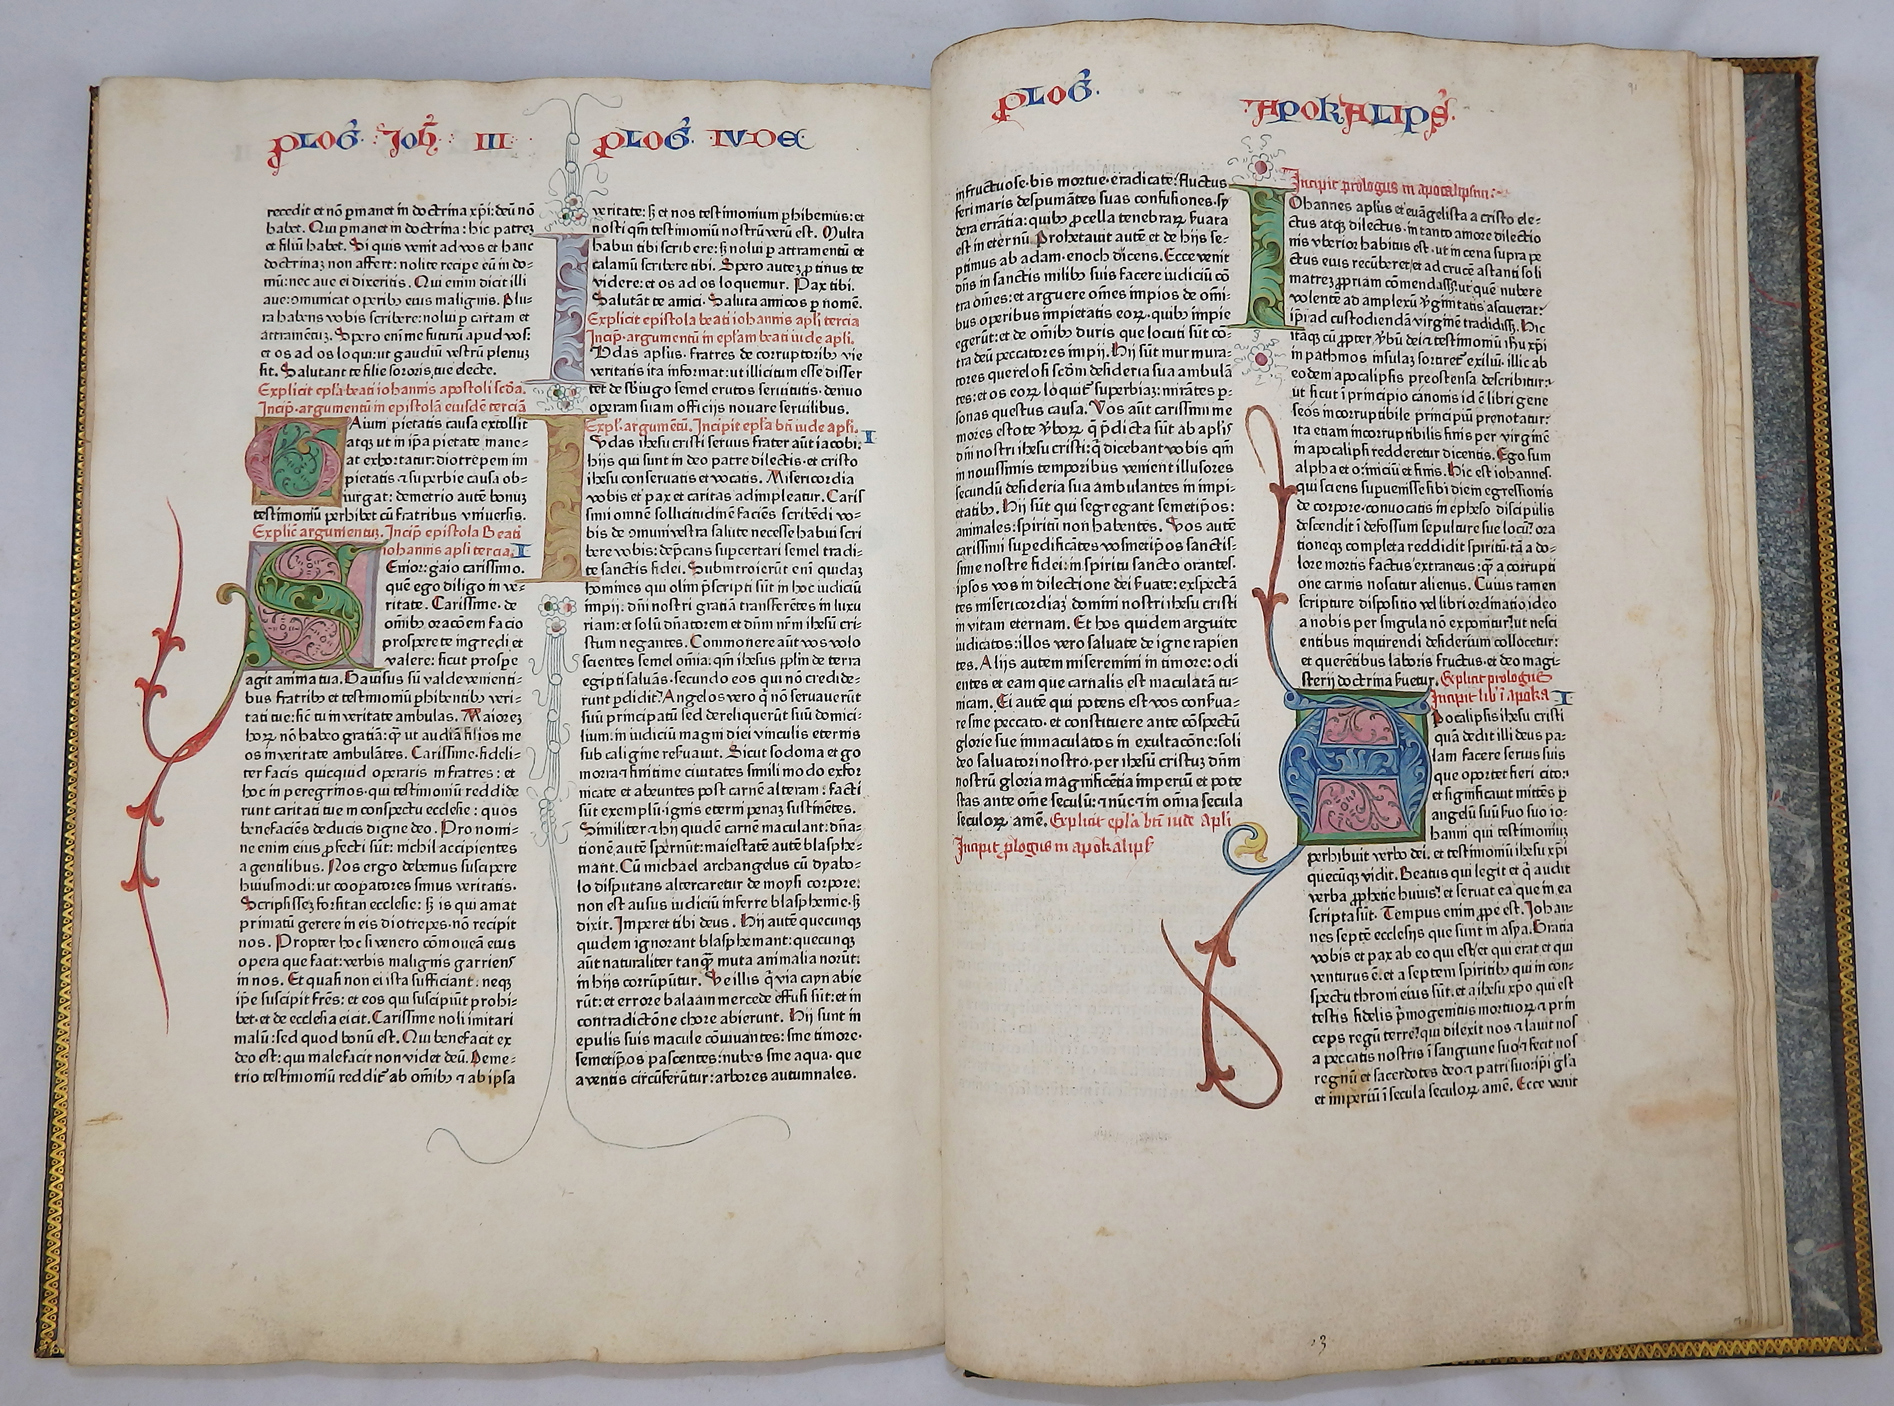 PLOG̃. Joh̃. III
recedit et nō ꝑmanet in doctrina xp̄i: deū nō
habet. Qui ꝑmanet in doctrina: hic patreꝫ
et filiū habet. Si quis venit ad vos et hanc
doctrinaꝫ non affert: nolite recipe eū in do⸗
mū: nec aue ei dixeritis. Qui enim dicit illi
aue: ōmunicat operibꝫ eius malignis. Plu⸗
ra habens vobis scribere: nolui ꝑ cartam et
attramētū. Spero eni me futurū apud vos:
et os ad os loqui: ut gaudiū vestrū plenuꝫ
sit. Salutant te filie sororis tue electe.
Explicit epl̄a beati iohannis apostoli scd̄a.
Incip̄. argumentū in epistolā eiusdē terciā
Aium pietatis causa extollit
atqꝫ ut in ip̄a pietate mane⸗
at exhortatur: diotrepem in
pietatis ⁊ superbie causa ob⸗
iurgat: demetrio autē bonuꝫ
testimoniū perhibet cū fratribus vniuersis.
Explic̄ argumentuꝫ. Incip̄ epistola Beati
iohannis apl̄i tercia. I
Enior: gaio carissimo.
quē ego diligo in ve⸗
ritate. Carissime. de
om̄ibꝫ oracōem facio
prospere te ingredi et
valere: sicut prospe
agit anima tua. Gauisus sū valde venienti⸗
bus fratribꝫ et testimoniū ꝑhibentibꝫ veri⸗
tati tue: sic̄ tu in veritate ambulas. Maioreꝫ
hoꝝ nō habeo gratiā: q̄ ut audiā filios me
os in veritate ambulātes. Carissime. fideli⸗
ter facis quicquid operaris in fratres: et
hoc in peregrinos. qui testimoniū reddide
runt caritati tue in conspectu ecclesie: quos
benefaciēs deducis digne deo. Pro nomi⸗
ne enim eius ꝓfecti sūt: nichil accipientes
a gentilibus. Nos ergo debemus suscipere
huiusmodi: ut cooꝑatores simus veritatis.
Scripsisseꝫ forsitan ecclesie: sꝫ is qui amat
primatū gerere in eis diotrepes. nō recipit
nos. Propter hoc si venero cōmoueā eius
opera que facit: verbis malignis garriens
in nos. Et quasi non ei ista sufficiant: neqꝫ
ip̄e suscipit frēs: et eos qui suscipiūt prohi⸗
bet. et de ecclesia eicit. Carissime noli imitari
malū: sed quod bonū est. Qui benefacit ex
deo est: qui malefacit non videt deū. Deme⸗
trio testimoniū reddit̄ ab om̄ibꝫ ⁊ ab ipsa
PLOG̃. IVDE
veritate: sꝫ et nos testimonium ꝑhibemus: et
nosti qm̄ testimoniū nostrū verū est. Multa
habui tibi scribere: sꝫ nolui ꝑ attramentū et
calamū scribere tibi. Spero auteꝫ ꝓtinus te
videre: et os ad os loquemur. Pax tibi.
Salutāt te amici. Saluta amicos ꝑ nomē.
Explicit epistola beati iohannis apl̄i tercia
Incip̄. argumentū in epl̄am beati iude apl̄i.
Vdas apl̄us. fratres de corruptoribꝫ vie
veritatis ita informat: ut illicitum esse disser
tet de sb̄iugo semel erutos seruitutis. denuo
operam suam officijs nouare seruilibus.
Expl̄. argumētū. Incipit epl̄a bt̄i iude apl̄i. I
Vdas ih̄esu cristi seruus frater aūt iacobi:
hijs qui sunt in deo patre dilectis. et cristo
ih̄esu conseruatis et vocatis. Misericordia
vobis et pax et caritas adimpleatur. Caris
simi omnē sollicitudinē faciēs scribēdi vo⸗
bis de omni vestra salute necesse habui scri
bere vobis: dep̄cans supcertari semel tradi⸗
te sanctis fidei. Subintroierūt eni quidaꝫ
homines qui olim p̄scripti sūt in hoc iudiciū
impij: dn̄i nostri gratiā transferētes in luxu
riam: et solū dn̄atorem et dn̄m nr̄m ih̄esū cri⸗
stum negantes. Commonere aūt vos volo
scientes semel om̄ia: qm̄ ih̄esus ppl̄m de terra
egipti saluās. secundo eos qui nō credide⸗
runt ꝑdidit. Angelos vero q̄ nō seruauerūt
suū principatū sed dereliquerūt suū domici⸗
lium: in iudiciū magni diei vinculis eternis
sub caligine reseruauit. Sicut sodoma et go
morra ⁊ finitime ciuitates simili modo exfor
nicate et abeuntes post carnē alteram: facti
sūt exemplū. ignis eterni penaꝫ sustinētes.
Similiter ⁊ hij quidē carnē maculant: dn̄a⸗
tionē autē spernūt: maiestatē autē blasphe⸗
mant. Cū michael archangelus cū dyabo⸗
lo disputans altercaretur de moysi corpore:
non est ausus iudiciū inferre blasphemie. sꝫ
dixit. Imperet tibi deus. Hij autē quecunqꝫ
quidem ignorant blasphemant: quecunqꝫ
aūt naturaliter tanqꝫ muta animalia norūt:
in hijs corrūpūtur. Ve illis q̄ via cayn abie
rūt: et errore balaam mercede effusi sūt: et in
contradictōne chore abierunt. Hij sunt in
epulis suis macule cōuiuantes: sine timore.
semetip̄os pascentes: nubes sine aqua. que
a ventis circūferūtur: arbores autumnales.
PLOG̃.
infructuose. bis mortue. eradicate: fluctus
feri maris despumātes suas confusiones. sy
dera errātia: quibꝫ ꝓcella tenebraꝝ seruata
est in eternū. Prophetauit autē et de hijs se⸗
ptimus ab adam. enoch dicens. Ecce venit
dn̄s in sanctis milibꝫ suis facere iudiciū cō
tra om̄es: et arguere om̄es impios de om̄i⸗
bus operibus impietatis eoꝝ. quibꝫ impie
egerūt: et de om̄ibꝫ duris que locuti sūt cō⸗
tra deū peccatores impij. Hij sūt murmura⸗
tores querelosi scd̄m desideria sua ambulā
tes: et os eoꝝ loquit̄ superbiaꝫ: mirātes ꝑ⸗
sonas questus causa. Vos aūt carissimi me
mores estote v̄boꝝ q̄ p̄dicta sūt ab apl̄is
dn̄i nostri ih̄esu cristi: q̄ dicebant vobis qm̄
in nouissimis temporibus venient illusores
secundū desideria sua ambulantes in impi⸗
etatibꝫ. Hij sūt qui segregant semetip̄os:
animales: spiritū non habentes. Vos autē
carissimi supedificātes vosmetip̄os sanctis⸗
sime nostre fidei: in spiritu sancto orantes.
ipsos vos in dilectione dei seruate: exspectā
tes misericordiaꝫ domini nostri ih̄esu cristi
in vitam eternam. Et hos quidem arguite
iudicatos: illos vero saluate de igne rapien
tes. Alijs autem miseremini in timore: odi
entes et eam que carnalis est maculatā tu⸗
nicam. Ei autē qui potens est vos conserua⸗
re sine peccato. et constituere ante cōspectū
glorie sue immaculatos in exultacōne: soli
deo saluatori nostro. per ih̄esū cristuꝫ dn̄m
nostrū gloria magnificētia imperiū et pote
stas ante om̄e seculū: ⁊ nūc ⁊ in om̄ia secula
seculoꝝ amē. Explicit epl̄a bt̄i iude apl̄i
Incipit ꝓlogus in apokalips̄
APOKALIPS̃.
Incipit prologus in apocalipsim.
Iohannes apl̄us et euāgelista a cristo ele⸗
ctus atqꝫ dilectus. in tanto amore dilectio
nis vberior habitus est. ut in cena supra pe
ctus eius recūberet. et ad crucē astanti soli
matreꝫ ꝓpriam cōmendasset: ut quē nubere
volentē ad amplexū v̄ginitatis asciuerat:
ip̄i ad custodiendā virginē tradidisset. Hic
itaqꝫ cū ꝓpter v̄bū dei ⁊ testimoniū ih̄u xp̄i
in pathmos insulaꝫ sortiret̄ exiliū. illic ab
eodem apocalipsis preostensa describitur:
ut sicut ī principio canonis id ē libri gene
seos incorruptibile principiū prenotatur:
ita etiam incorruptibilis finis per virginē
in apocalipsi redderetur dicentis. Ego sum
alpha et o: iniciū et finis. Hic est iohannes.
qui sciens supuenisse sibi diem egressionis
de corpore. conuocatis in epheso discipulis
descendit ī defossum sepulture sue locū. ora
tioneqꝫ completa reddidit spiritū. tā a do⸗
lore mortis factus extraneus: q̄ a corrupti
one carnis noscitur alienus. Cuius tamen
scripture dispositio vel libri ordinatio. ideo
a nobis per singula nō exponitur. ut nesci
entibus inquirendi desiderium collocetur:
et querētibus laboris fructus. et deo magi⸗
sterij doctrina seruetur. Explicit prologus
Incipit lib̄ ī apoka. I
Apocalipsis ih̄esu cristi
quā dedit illi deus pa⸗
lam facere seruis suis
que oportet fieri cito:
et significauit mittēs ꝑ
angelū suū seruo suo io⸗
hanni qui testimoniuꝫ
perhibuit verbo dei. et testimoniū ih̄esu xp̄i
quecūqꝫ vidit. Beatus qui legit et q̄ audit
verba ꝓphetie huius: et seruat ea que in ea
scripta sūt. Tempus enim ꝓpe est. Johan⸗
nes septē ecclesijs que sunt in asya. Gratia
vobis et pax ab eo qui est. et qui erat et qui
venturus ē. et a septem spiritibꝫ qui in con⸗
spectu throni eius sūt. et a ih̄esu xp̄o qui est
testis fidelis p̄mogenitus mortuoꝝ ⁊ prin
ceps regū terre: qui dilexit nos ⁊ lauit nos
a peccatis nostris ī sanguine suo. ⁊ fecit nos
regnū et sacerdotes deo ⁊ patri suo: ip̄i gl̄a
et imperiū ī secula seculoꝝ amē. Ecce venit